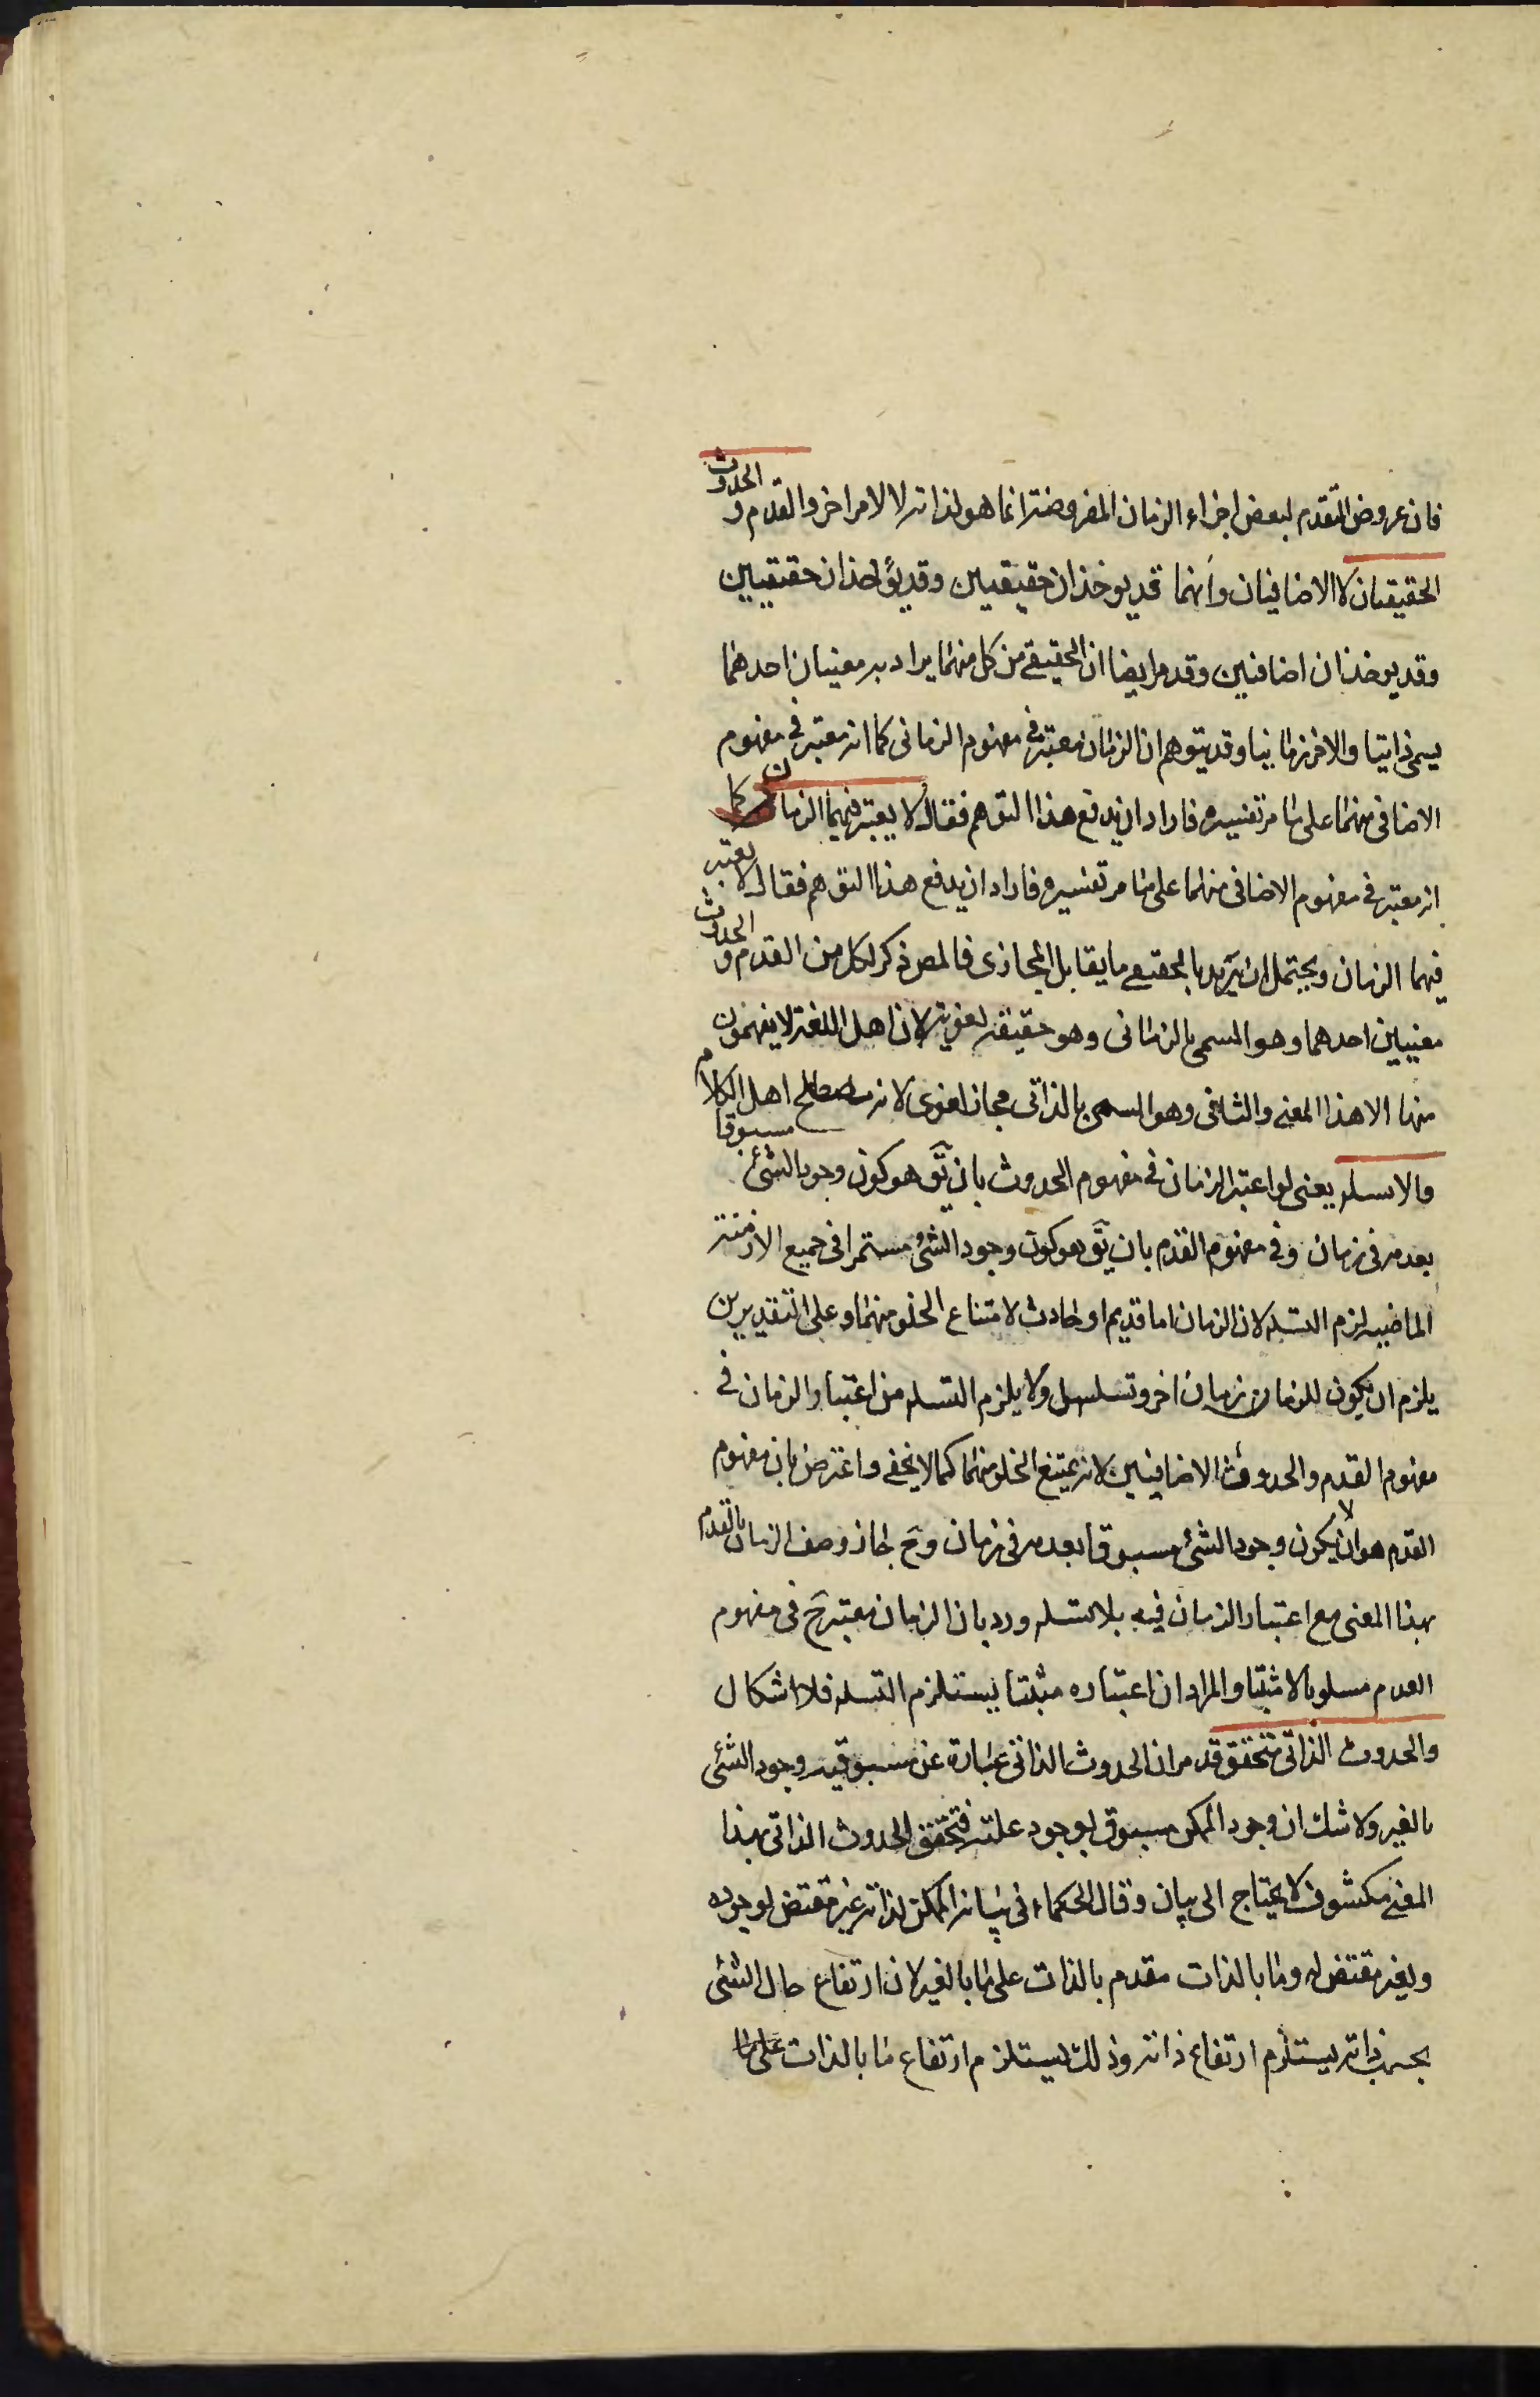 فان عروض التقدم لبعض اجزاء الزمان المفروضة انما هو لذاته لا لامر اخر والقدم و الحدوث
الحقيقيان لا الاضافيان وانهما قد يوخذان حقيقيين وقد يؤخذان حقيقيين
وقد يوخذان اضافيين وقد مر ايضا ان الحقيقي من كل منهما يراد به معنيان احدهما
يسمى ذاتيا والاخر زمانيا وقد يتوهم ان الزمان معتبر في مفهوم الزمانى كما انه معتبر في مفهوم
الاضافى منهما على ما مر تفسيره فاراد ان يدفع هذا التوهم فقال لا يعتبر فيهما الزمان كما
انه معتبر في مفهوم الاضافى منهما على ما مر تفسيره فاراد ان يدفع هذا التوهم فقال لا يعتبر
فيهما الزمان ويحتمل ان يريد بالحقيقي ما يقابل المجازى فالمص ذكر لكل من القدم و الحدوث
معنيين احدهما وهو المسمى بالزمانى وهو حقيقة لغوية لان اهل اللغة لا يفهمون
منها الا هذا المعنى والثانى وهو المسمى بالذاتى مجاز لغوى لانه مصطلح اهل الكلام
والا سلسل يعنى لو اعتبر الزمان في مفهوم الحدوث بان يق هو كون وجود الشئ مسبوقا
بعدمه فى زمان وفي مفهوم القدم بان يق هو كون وجود الشئ مستمرا فى جميع الازمنة
الماضيه لزم التسلسل لان الزمان اما قديم او حادث لامتناع الخلو منهما وعلى التقديرين
يلزم ان يكون للزمان زمان اخر وتسلسل ولا يلزم التسلسل من اعتبار الزمان في
مفهوم القدم والحدوث الاضافيين لانه يمتنع الخلو منهما كما لا يخفى واعترض بان مفهوم
القدم هو ان لا يكون وجود الشئ مسبوقا بعدمه فى زمان وح جاز وصف الزمان بالقدم
بهذا المعنى مع اعتبار الزمان فيه بلا تسلسل ورد بان الزمان معتبر ح فى مفهوم
العدم مسلوبا لا مثبتا والمراد ان اعتباره مثبتا يستلزم التسلسل فلا اشكال
والحدوث الذاتى متحقق قد مر ان الحدوث الذاتى عبارة عن مسبوقيه وجود الشئى
بالغير ولا شك ان وجود الممكن مسبوق بوجود علته فتحقق الحدوث الذاتى بهذا
المعنى مكشوف لا يحتاج الى بيان وقال الحكماء فى بيانه الممكن لذاته غير مقتض لوجوده
ولغيره مقتض له وما بالذات مقدم بالذات على ما بالغير لان ارتفاع حال الشئى
بحسب ذاته يستلزم ارتفاع ذاته وذلك يستلزم ارتفاع ما بالذات على ما